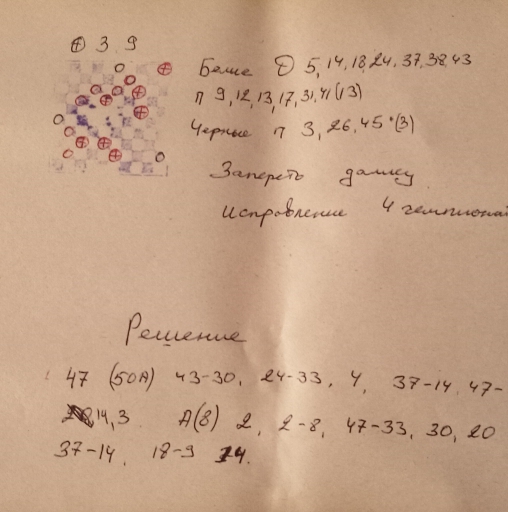 ⊕ 3. 9
Белые D 5, 14, 18, 24, 37, 38, 43
п 9, 12, 13, 17, 31, 41 (13)
Черные п 3, 26, 45 (3)
Запереть дамку
Исправление 4 чемпиона
Решение
47 (50А) 43-30, 24-33, 4, 37-14, 47-
14, 3. А(8) 2, 2-8, 47-33, 30, 20
37-14, 18-9 24.